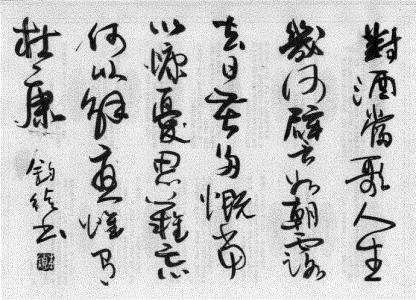 對酒當歌人生
幾何譬如朝露
去日苦多慨當
以慷憂思難忘
何以解憂惟有
杜康
書